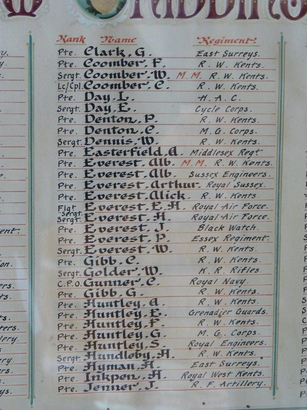 Rank Name Regiment
Pte. Clark, G. East Surreys.
Pte. Coomber, F. R. W. Kents.
Sergt. Coomber, W. M. M. R. W. Kents.
Lc/Cpl. Coomber, C. R. W. Kents.
Pte. Day, L. H. A. C.
Sergt. Day, E. Cycle Corps.
Pte. Denton, P. R. W. Kents.
Pte. Denton, C. M. G. Corps.
Sergt. Dennis, W. R. W. Kents.
Pte. Easterfield, A. Middlesex Regt.
Pte. Everest, Alb. M. M. R. W. Kents.
Pte. Everest, Alb. Sussex Engineers.
Pte. Everest, Arthur. Royal Sussex.
Pte. Everest, Alick. R. W. Kents.
Flgt Sergt. Everest, E. A. Royal Air Force.
Sergt. Everest, H. Royal Air Force.
Pte. Everest, J. Black Watch.
Pte. Everest, P. Essex Regiment.
Sergt. Everest, W. R. W. Kents.
Pte. Gibb, C. R. W. Kents.
Sergt. Golder, W. K. R. Rifles
C.P.O. Gunner, C. Royal Navy
Pte. Gibb, G. R. W. Kents.
Pte. Huntley, A. R. W. Kents.
Pte. Huntley, E. Grenadier Guards.
Pte. Huntley, F. R. W. Kents.
Pte. Huntley, G. M. G. Corps.
Pte. Huntley, S. Royal Engineers.
Sergt. Hundleby, A. R. W. Kents.
Pte. Hyman, H. East Surreys.
Pte. Inkpen, A. Royal West Kents.
Pte. Jenner, J. R. F. Artillery.